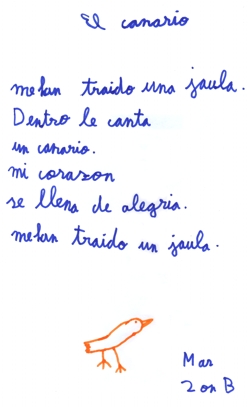 El canario
mehan traido una jaula.
Dentro le canta
un canario.
mi corazon
se llena de alegria.
mehan traido un jaula.
Mar
2 on B